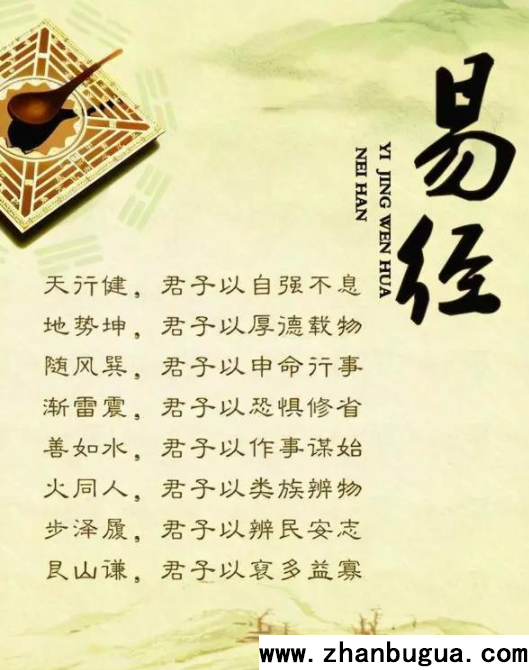 易经
YI JING WEN HUA
NEI HAN
天行健，君子以自强不息
地势坤，君子以厚德载物
随风巽，君子以申命行事
渐雷震，君子以恐惧修省
善如水，君子以作事谋始
火同人，君子以类族辨物
步泽履，君子以辨民安志
艮山谦，君子以裒多益寡
www.zhanbugua.com